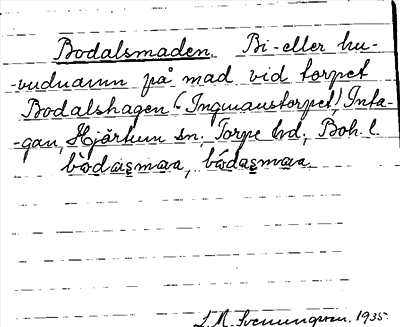 Bodalsmaden. Bi- eller hu-
-vudnamn på mad vid torpet
Bodalshagen (Ingmanstorpet), Inta-
-gan, Hjärtum sn., Torpe hd, Boh. l.
bòdasmaa, bódasmaa.
L. M. Svenungsson. 1935.